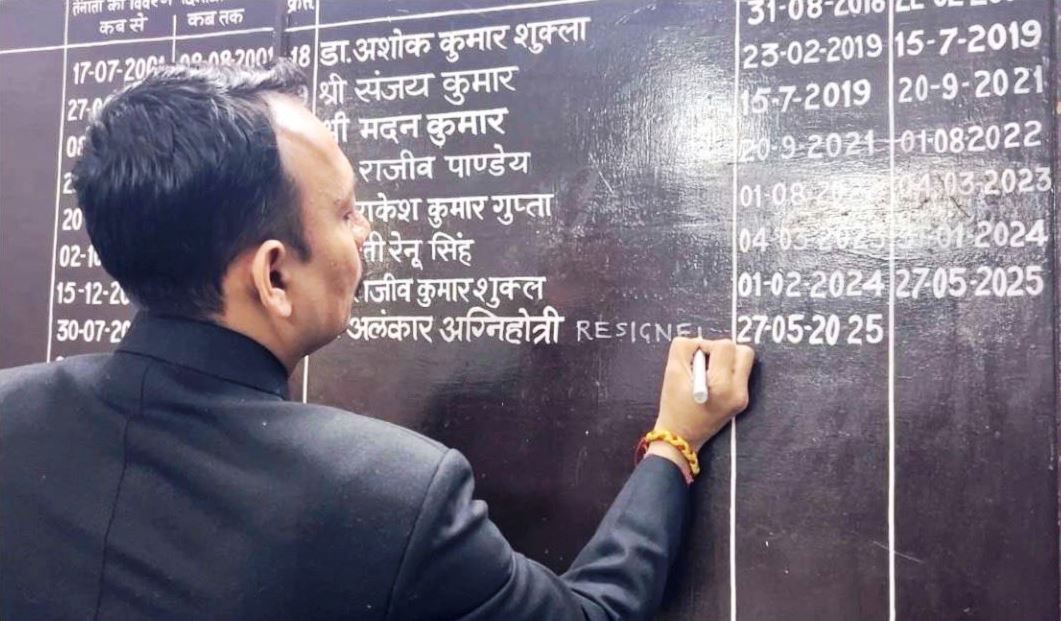 तैनाती का विवरण
कब से कब तक
31-08-2018
17-07-2001 08-08-2001 18 डा.अशोक कुमार शुक्ला 23-02-2019 15-7-2019
श्री संजय कुमार 15-7-2019 20-9-2021
मदन कुमार 20-9-2021 01-082022
राजीव पाण्डेय 01-08-2022 04-03-2023
राकेश कुमार गुप्ता 04-03-2023 31-01-2024
रेनू सिंह 01-02-2024 27-05-2025
15-12-20 राजीव कुमार शुक्ल 27-05-2025
30-07-20 अलंकार अग्निहोत्री RESIGNE